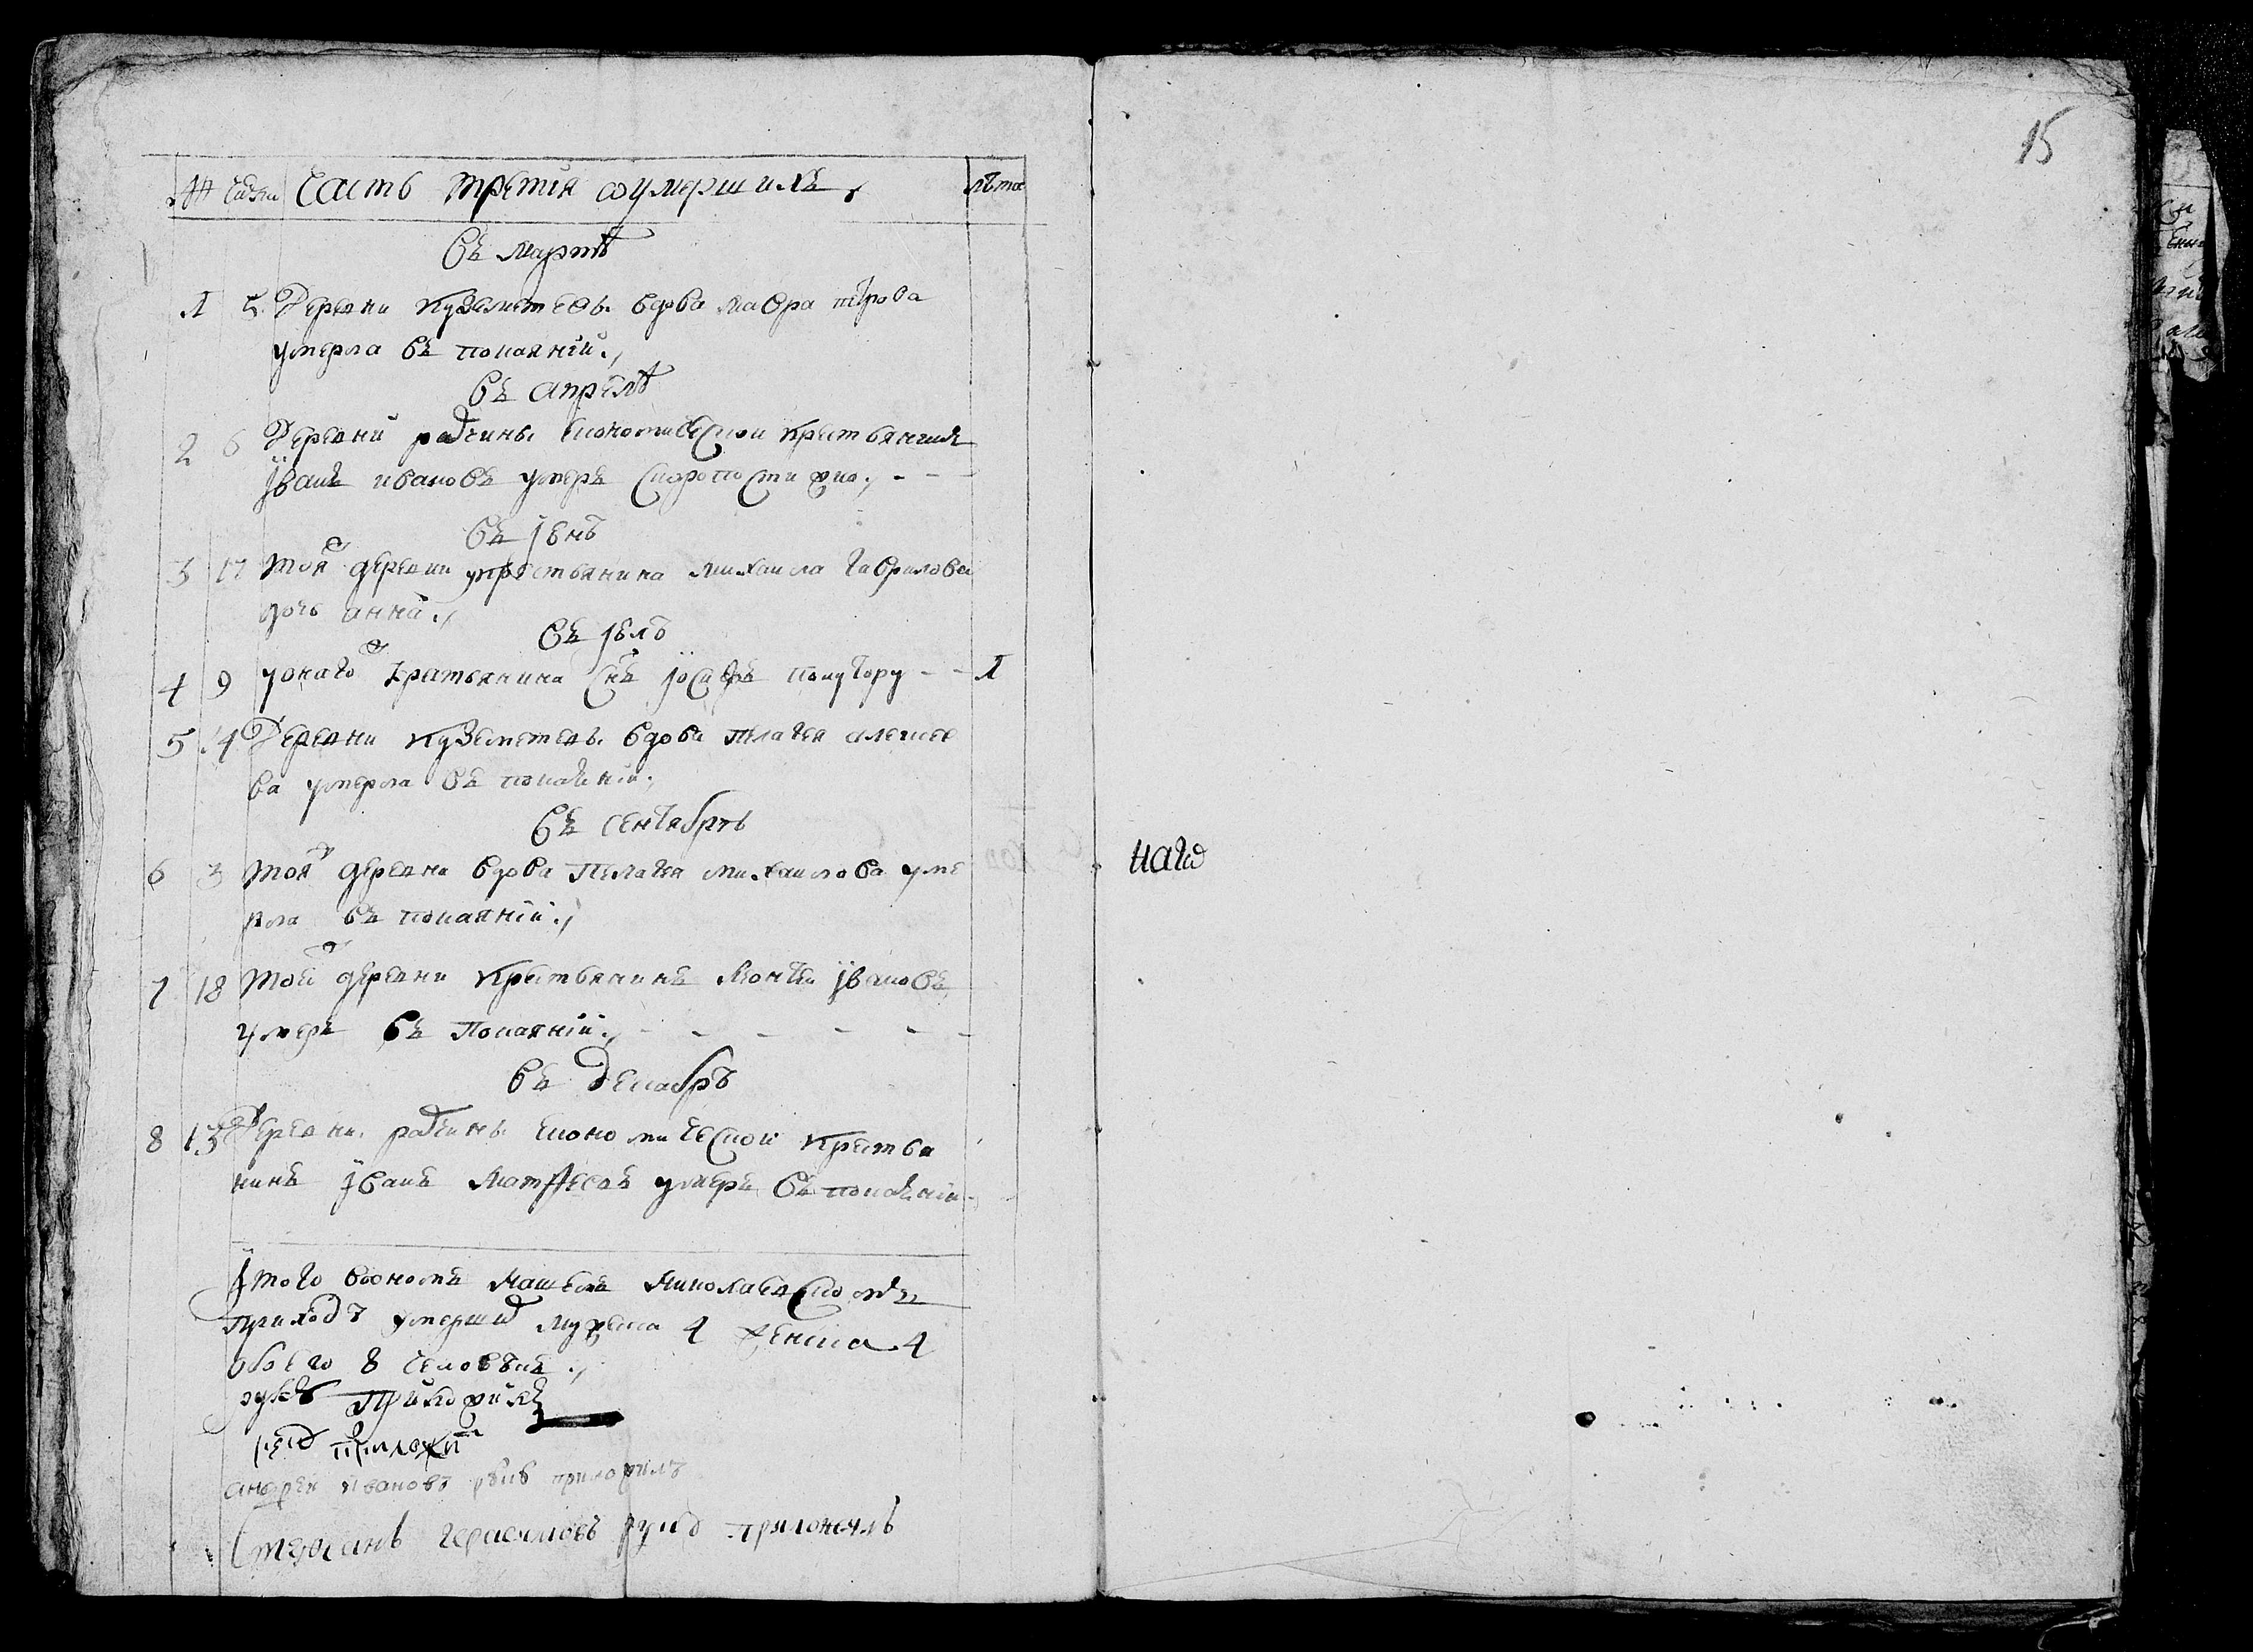 15
№ числа Часть третїя ѡумершихъ, лѣта
Въ мартѣ
1 5 Деревни Кузметевъ вдова мавра петрова
умерла въ покаянїи.,
Въ апрелѣ
2 6 Деревни радчины економической крестьянинъ
Їванъ ивановъ умеръ Скоропостижно., - - -
Въ їюнѣ
3 17 Той деревни укрестьянина михаила гаврилова
дочь анна.,
Въ їюлѣ
4 9 уонаго крестьянина Снъ їосифъ полутору - - 1
5 14 Деревни Кузметевъ вдова пелагея алексее
ва умерла въ покаянїи.,
Въ сентябрѣ
6 3 Той деревни вдова Пелагея михаилова уме
рла въ покаянїи.,
7 18 Той деревни Крестьянинъ Ївановъ
умеръ въ Покаянїи., - - - - -
Въ Декабрѣ
8 13 Деревни радчины економической Крестья
нинъ Їванъ Матфеевъ умеръ въ покаянїи.
Їтого вономъ нашемъ Николаевскомъ
приходѣ умерших мужеска 4 женска 4
обоего 8 человѣкъ.,
руку приложилъ
приложил
андрей Ивановъ руку приложилъ
Стефанъ герасимовъ руку приложилъ
наго